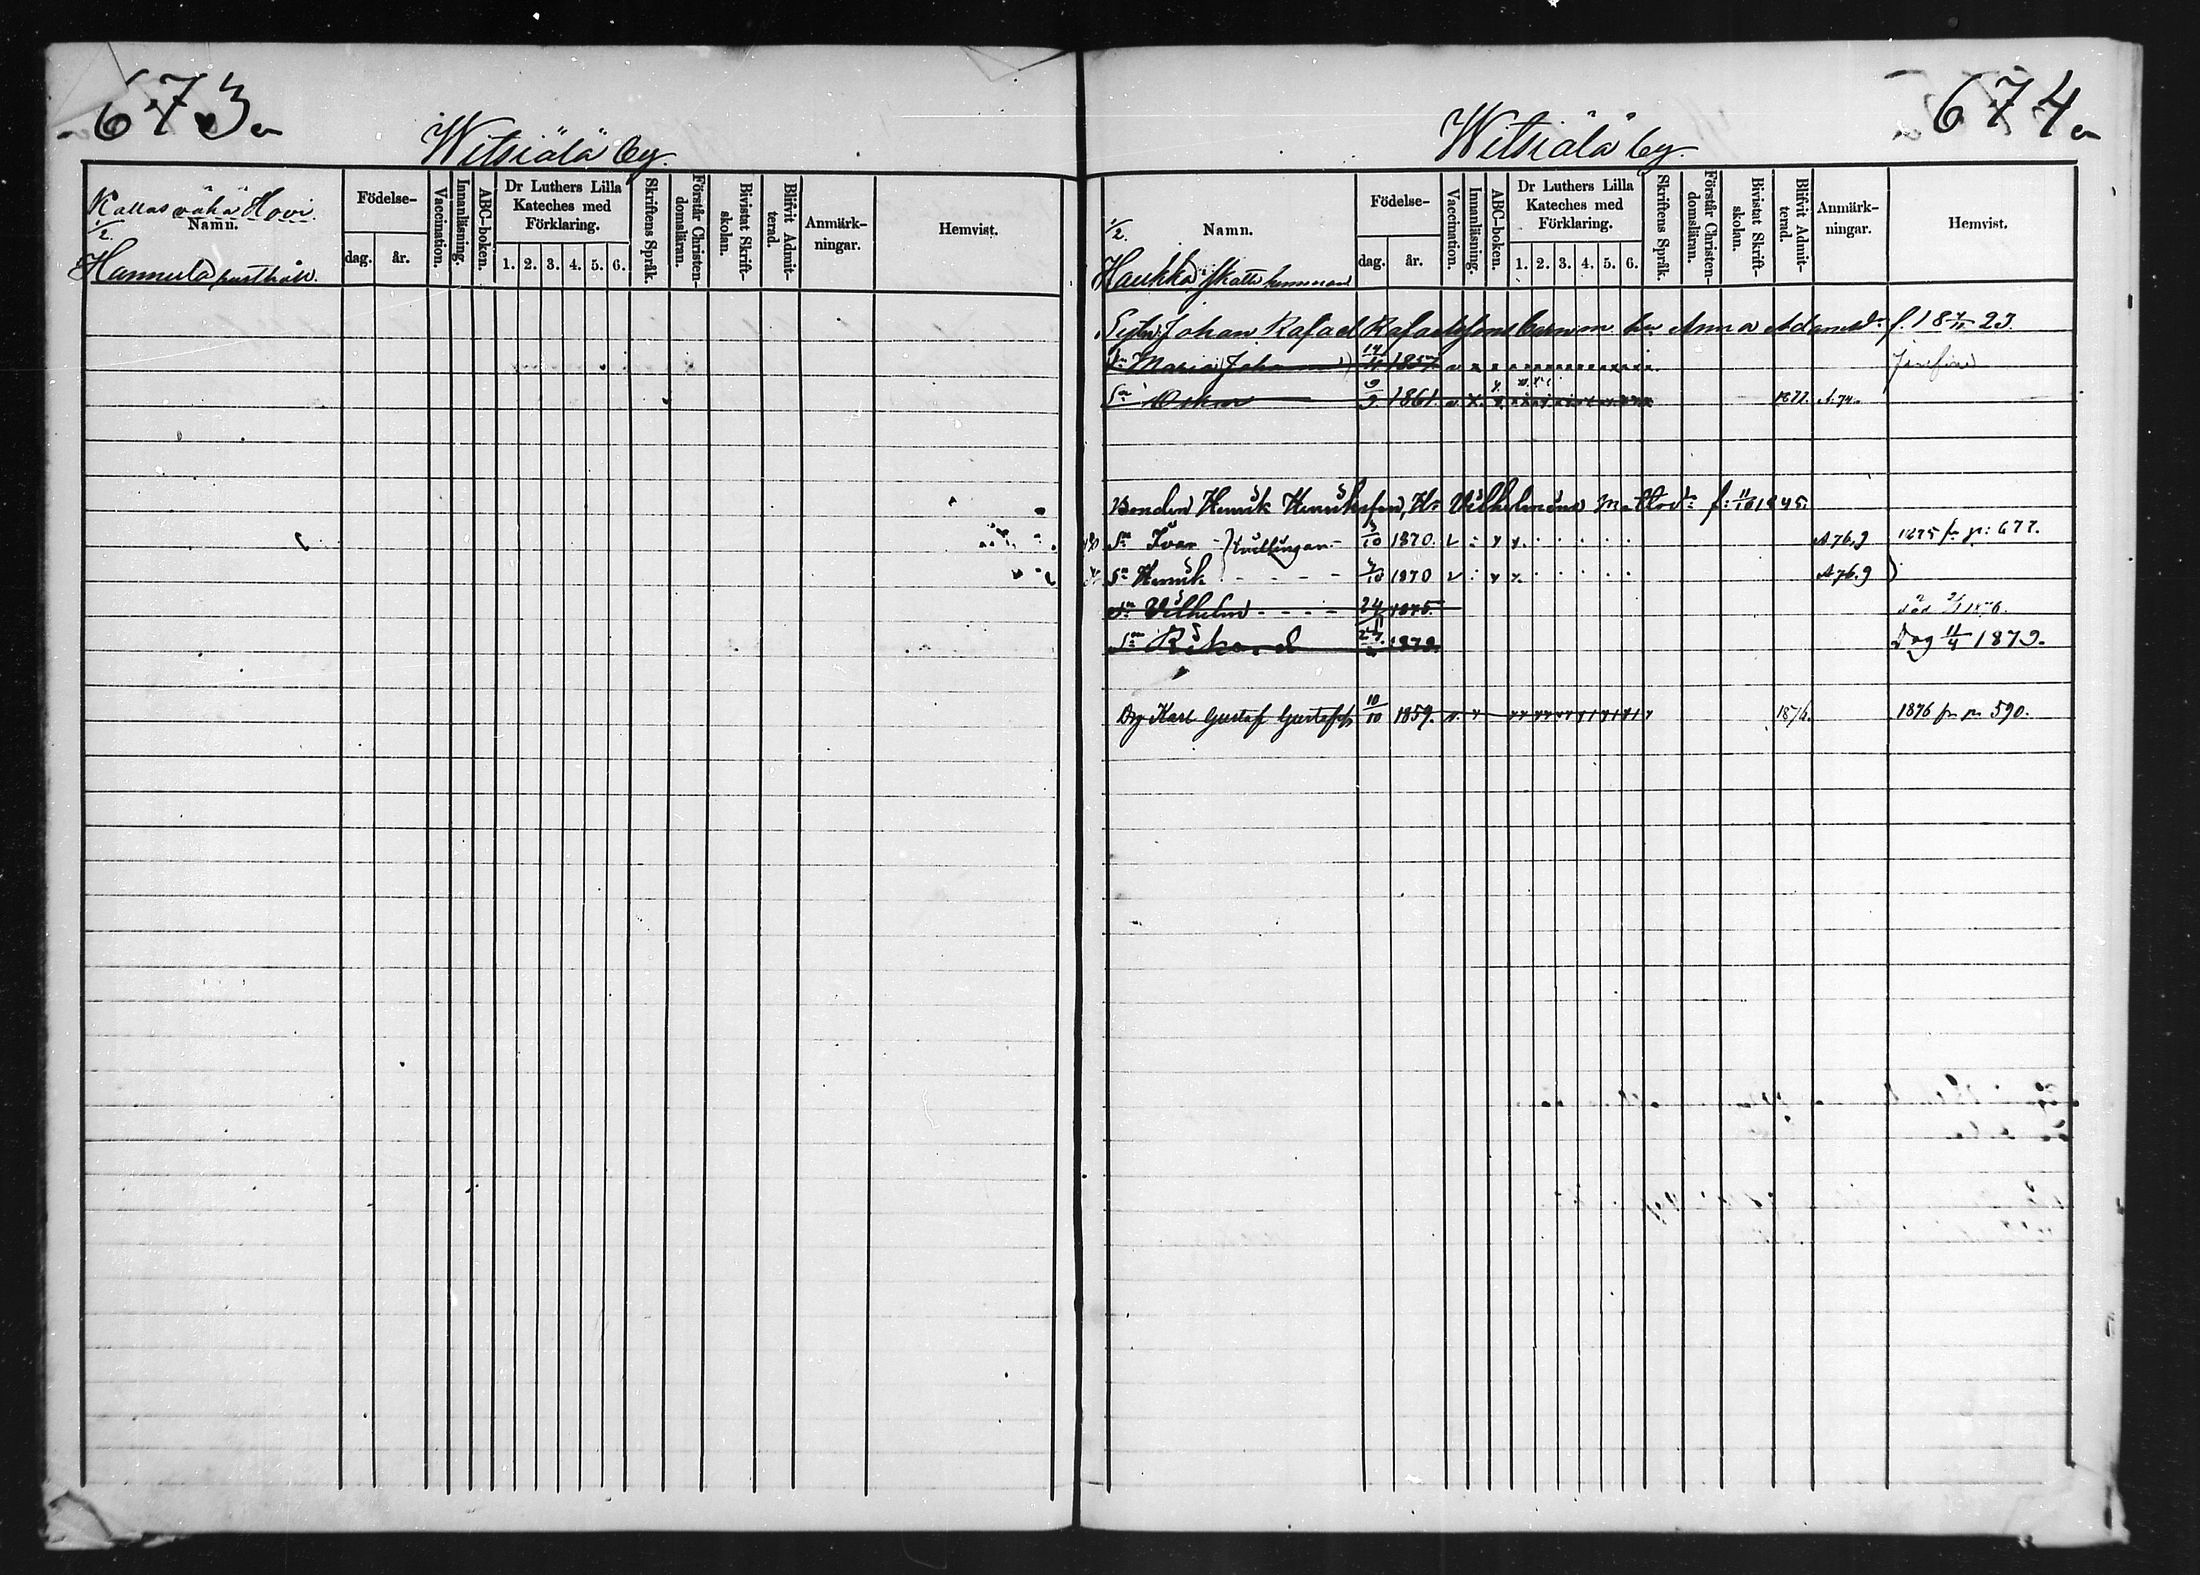 673
Witsiälä by.
Kallas vähä Hovi.
1/2.
Hannula
Namn.
Födelse-
dag. år.
Vaccination.
Innanläsning.
ABC-boken.
Dr Luthers Lilla
Kateches med
Förklaring.
1. 2. 3. 4. 5. 6.
Skriftens Språk.
Förstår Christen-
domsläran.
Bivistat Skrift-
skolan.
Blifvit Admit-
terad.
Anmärk-
ningar.
Hemvist.
674
Witsiälä by.
1/2.
Namn.
Haukka Skatte hemman
Födelse-
dag. år.
Vaccination.
Innanläsning.
ABC-boken.
Dr Luthers Lilla
Kateches med
Förklaring.
1. 2. 3. 4. 5. 6.
Skriftens Språk.
Förstår Christen-
domsläran.
Bivistat Skrift-
skolan.
Blifvit Admit-
terad.
Anmärk-
ningar.
Hemvist.
Johan Rafael Rafaelsson Anna Adamsdr f. 18 23
Dr Maria Johanna 1857.
Sn Oskar 9/9. 1861. 1877. A. 74.
Bonden Henrik Henriksson, Hu Vilhelmina Matsdr f: 11/10 1845.
Sn Ivar Tvillingar 3/10 1870. v A 76.9 1875 fr p: 677.
Sn Henrik 3/10 1870 v A 76.9
Sn Vilhelm 24 1875. död 1876.
Sn Rikard 1879. Dog 11/4 1879.
Drg Karl Gustaf Gustafss 10/10 1859. 1876. 1876 fr pn 590.